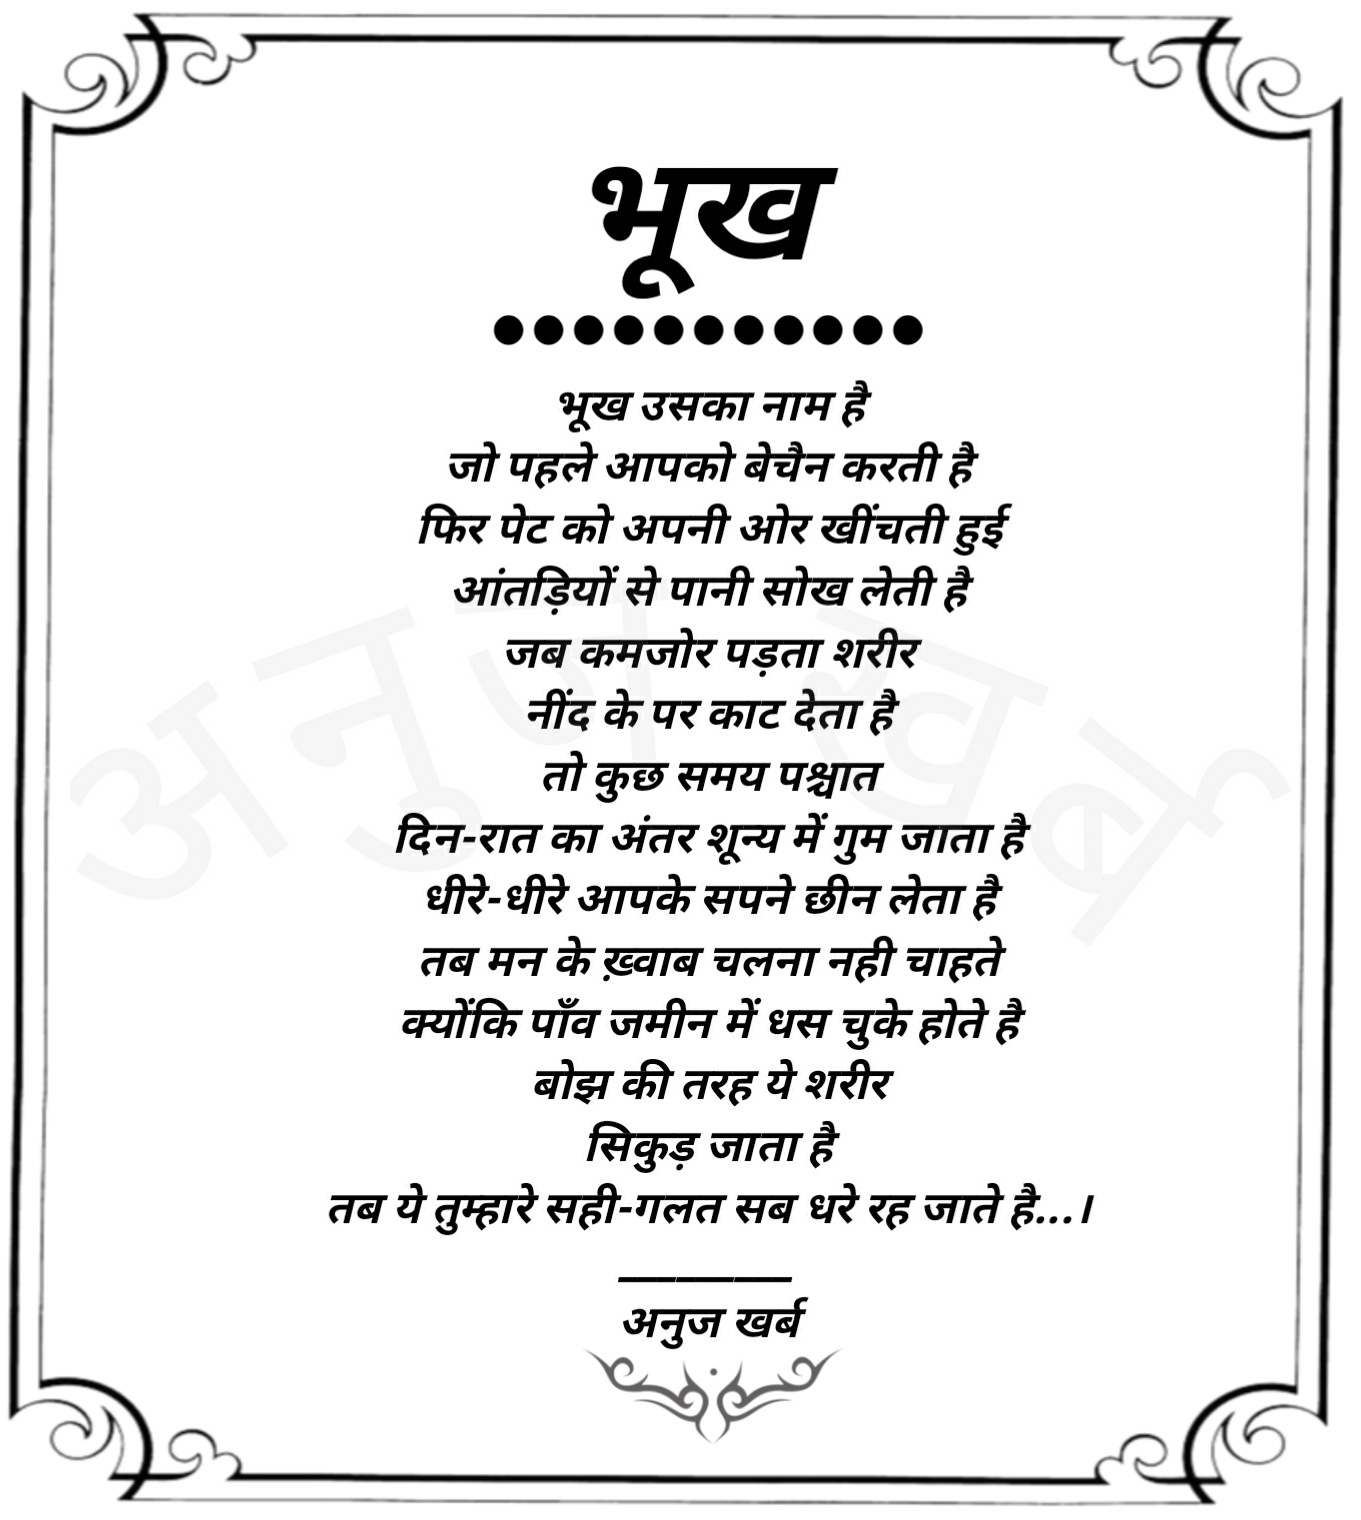 भूख
●●●●●●●●●●●
भूख उसका नाम है
जो पहले आपको बेचैन करती है
फिर पेट को अपनी ओर खींचती हुई
आंतड़ियों से पानी सोख लेती है
जब कमजोर पड़ता शरीर
नींद के पर काट देता है
तो कुछ समय पश्चात
दिन-रात का अंतर शून्य में गुम जाता है
धीरे-धीरे आपके सपने छीन लेता है
तब मन के ख़्वाब चलना नही चाहते
क्योंकि पाँव जमीन में धस चुके होते है
बोझ की तरह ये शरीर
सिकुड़ जाता है
तब ये तुम्हारे सही-गलत सब धरे रह जाते है...।
_________
अनुज खर्ब
अनुज खर्ब